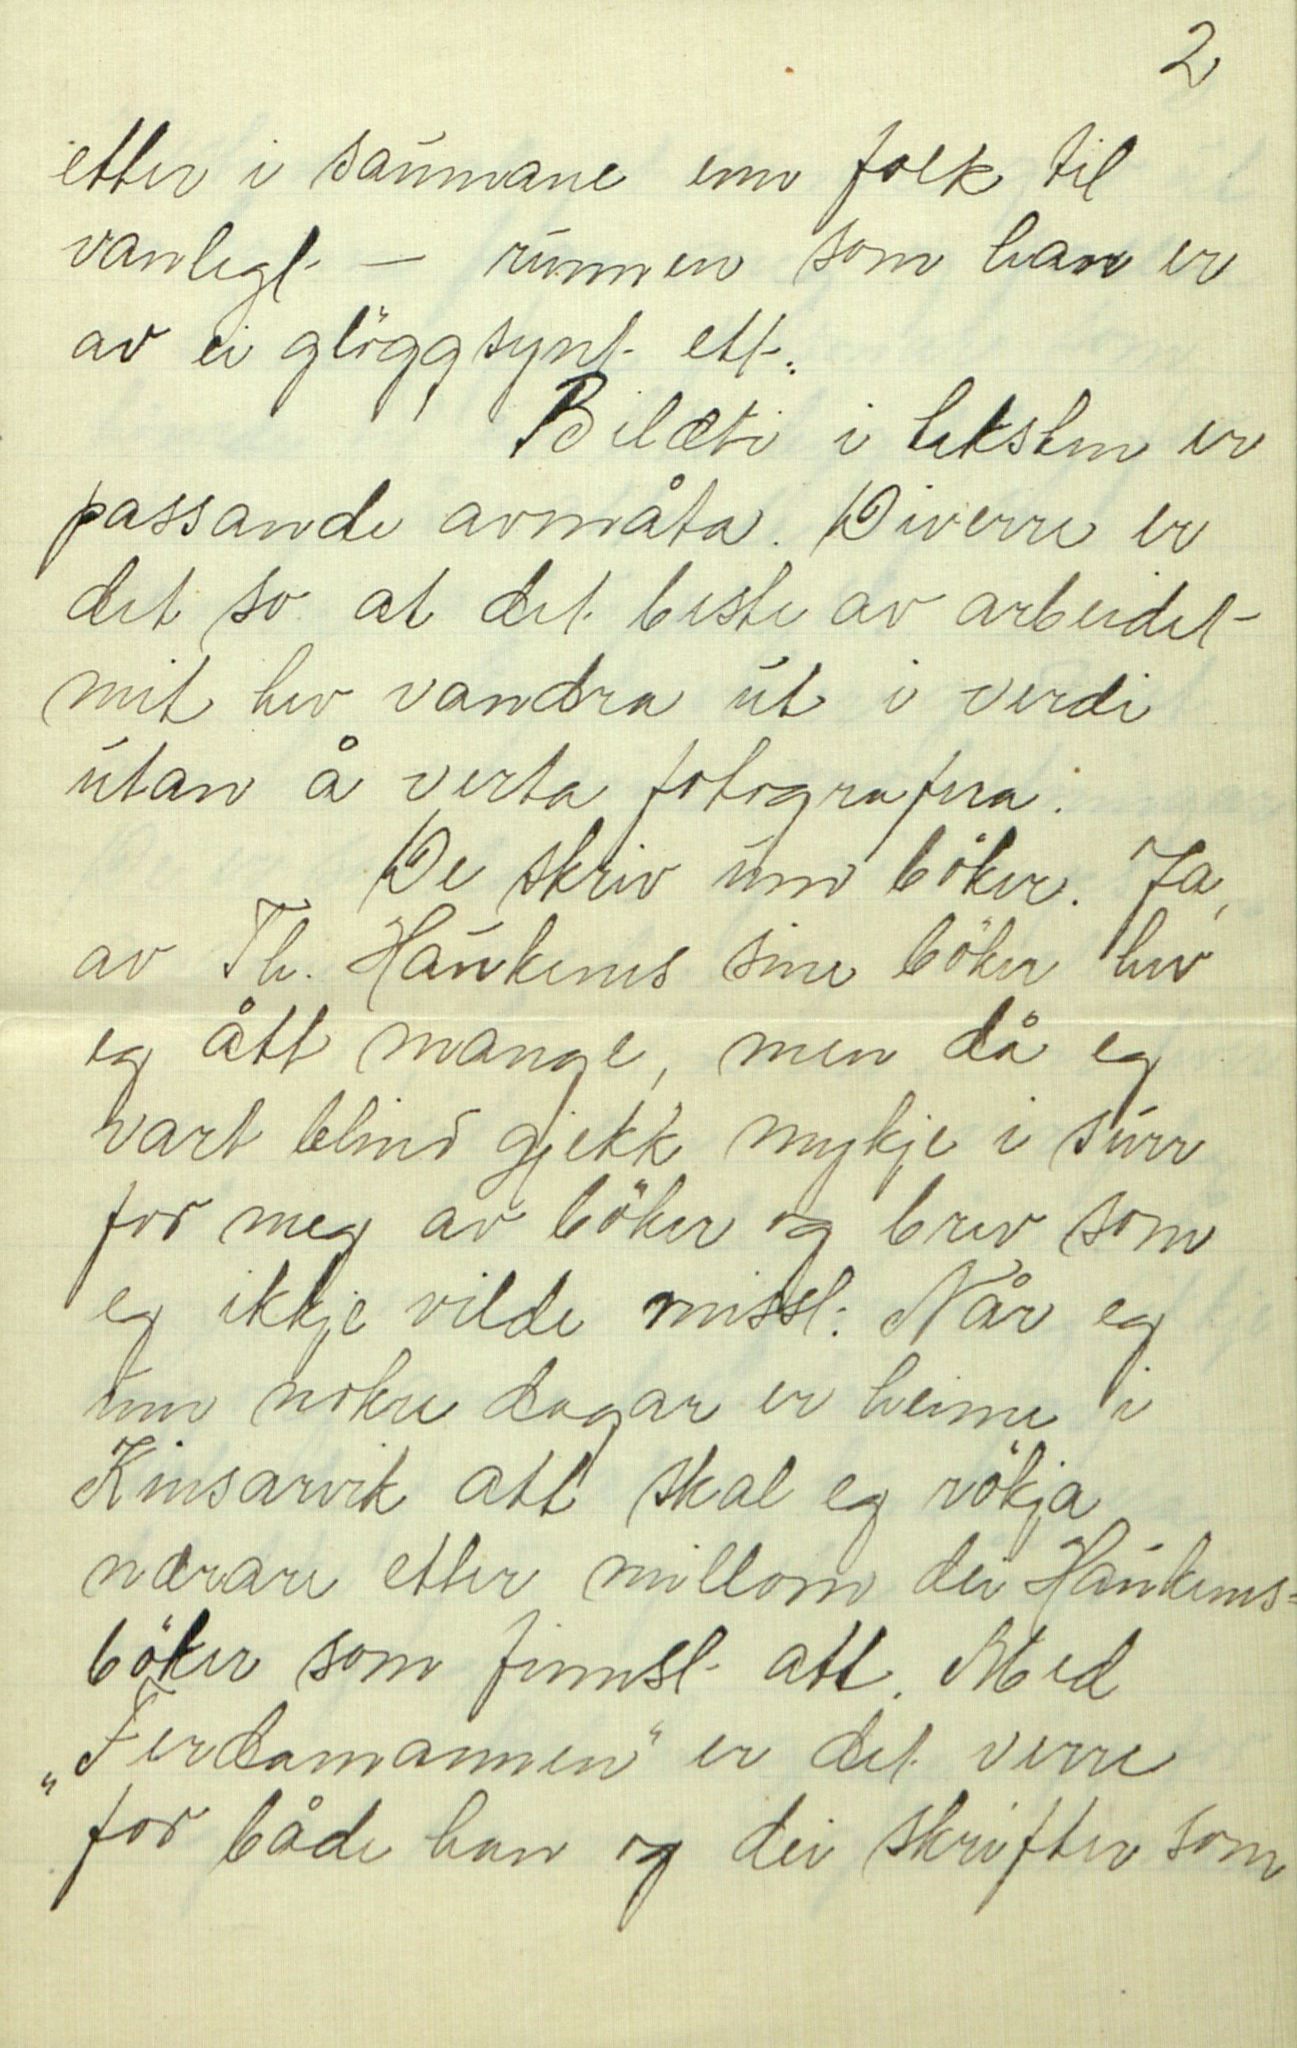 2
etter i saumane enn folk til
vanlegt — runnen som han er
av ei glöggsynt ett.
Bilæti i teksten er
passande avmåta. Diverre er
det so at det beste av arbeidet
mit hev vandra ut i verdi
utan å verta fotografera.
De skriv um böker. Ja,
av Th. Haukenes sine böker hev
eg ått mange, men då eg
vart blind gjekk mykje i surr
for meg av böker og brev som
eg ikkje vilde misst. Når eg
um nokre dagar er heime i
Kinsarvik att skal eg rökja
nærare etter millom dei Haukenes-
böker som finnst att. Med
„Ferdamannen“ er det verre
for både han og dei skrifter som